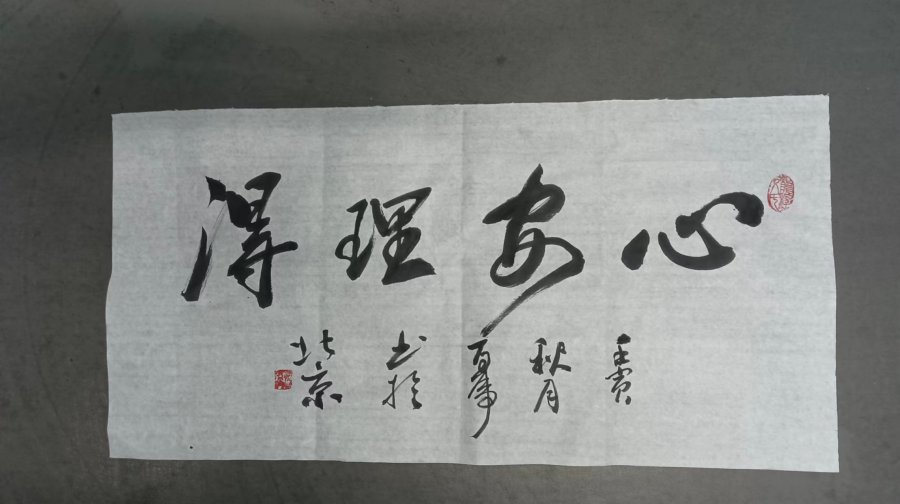 心安理得
壬寅
秋月
书於
北京